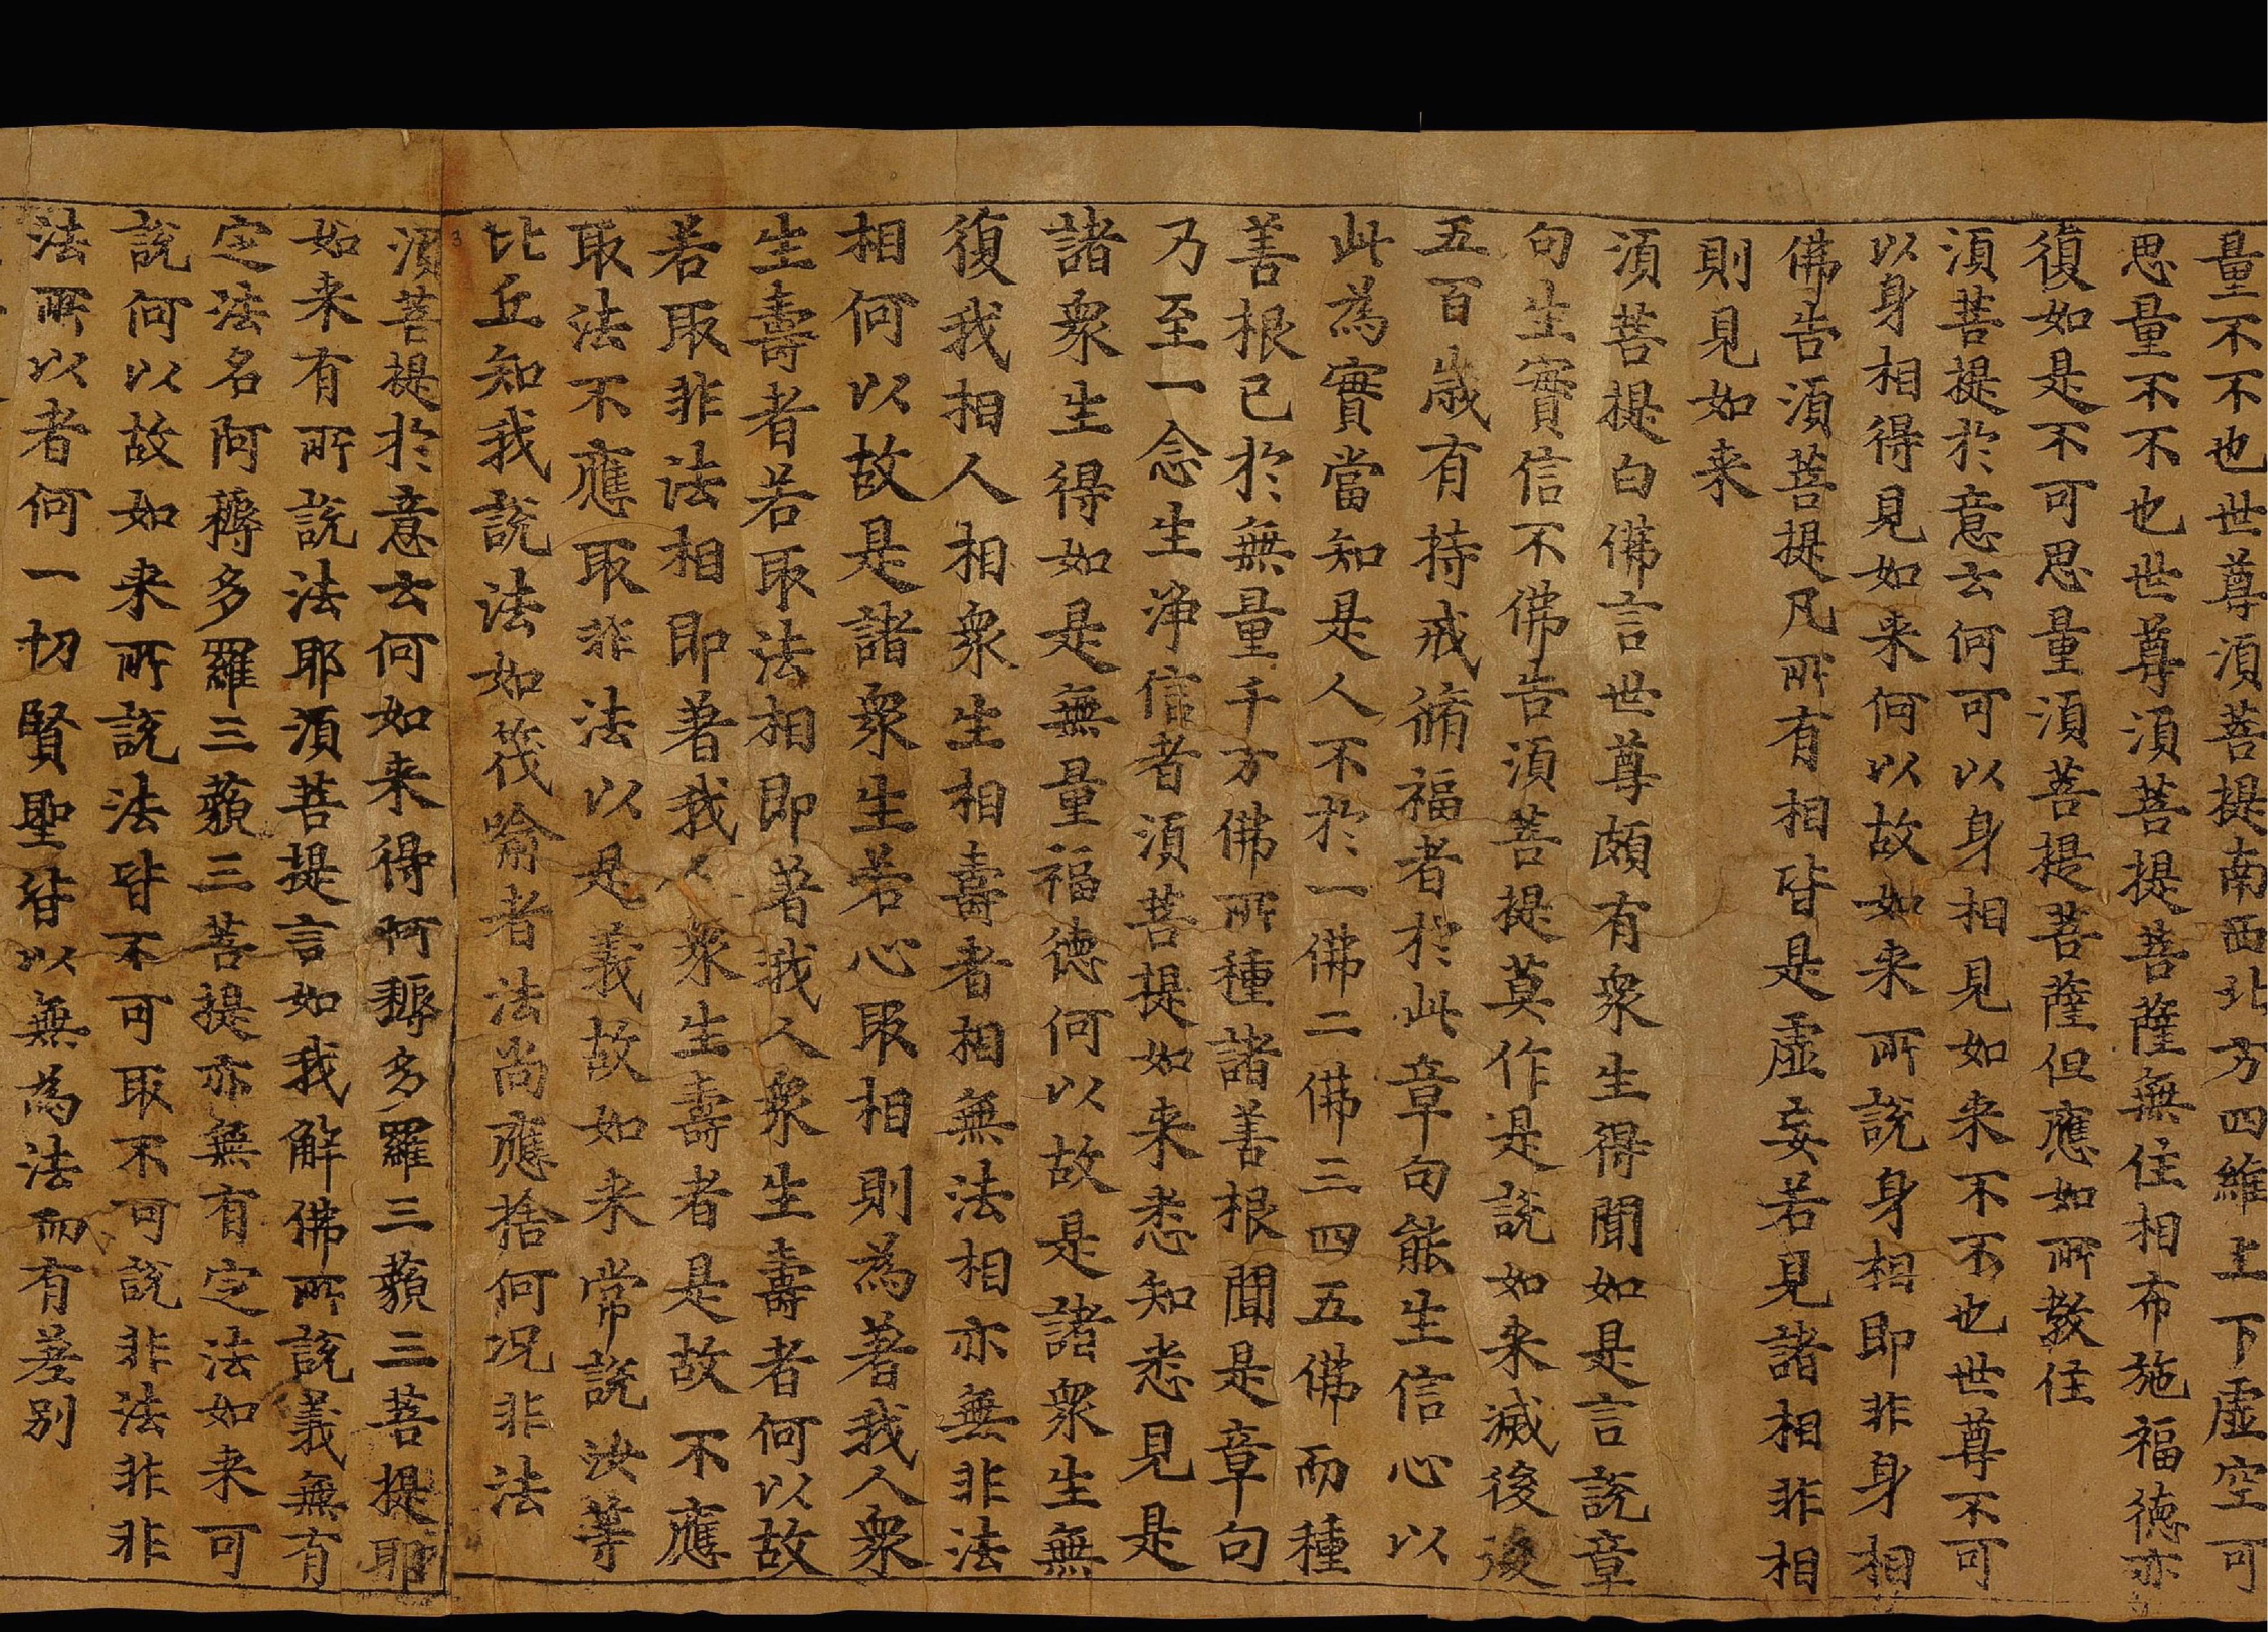 量不不也世尊須菩提南西北方四維上下虛空可
思量不不也世尊須菩提菩薩無住相布施福德亦
復如是不可思量須菩提菩薩但應如所教住
須菩提於意云何可以身相見如来不不也世尊不可
以身相得見如来何以故如来所說身相即非身相
佛告須菩提凡所有相皆是虛妄若見諸相非相
則見如来
須菩提白佛言世尊頗有衆生得聞如是言說章
句生實信不佛告須菩提莫作是說如来滅後後
五百歲有持戒脩福者於此章句能生信心以
此為實當知是人不於一佛二佛三四五佛而種
善根已於無量千万佛所種諸善根聞是章句
乃至一念生淨信者須菩提如来悉知悉見是
諸衆生得如是無量福德何以故是諸衆生無
復我相人相衆生相壽者相無法相亦無非法
相何以故是諸衆生若心取相則為著我人衆
生壽者若取法相即著我人衆生壽者何以故
若取非法相即著我人衆生壽者是故不應
取法不應取非法以是義故如来常說汝等
比丘知我說法如筏喻者法尚應捨何况非法
須菩提於意云何如来得阿耨多羅三藐三菩提耶
如来有所說法耶須菩提言如我解佛所說義無有
定法名阿耨多羅三藐三菩提亦無有定法如来可
說何以故如来所說法皆不可取不可說非法非非
法所以者何一切賢聖皆以無為法而有差別
3